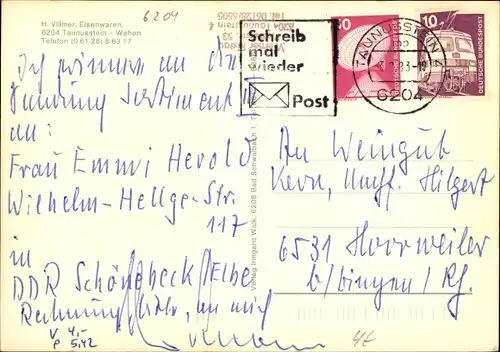 H. Villmer, Eisenwaren,
6204 Taunusstein - Wehen
Telefon (0 61 28) 8 63 17
6204
Schreib
mal
wieder
Post
TAUNUSSTEIN 1
6204
DEUTSCHE BUNDESPOST
10
DEUTSCHE BUNDESPOST
an
Sendung Sortiment
an:
Frau Emmi Herold
Wilhelm-Hellge-Str.
117
in
DDR Schönebeck/Elbe
Rechnung bitte, an mich
V 4,-
P 5.42
Verlag Irmgard Walk, 6208 Bad Schwalbach 1,
An Weingut
Kern, Nachf. Hilgert
6531 Horrweiler
b/Bingen/Rh.